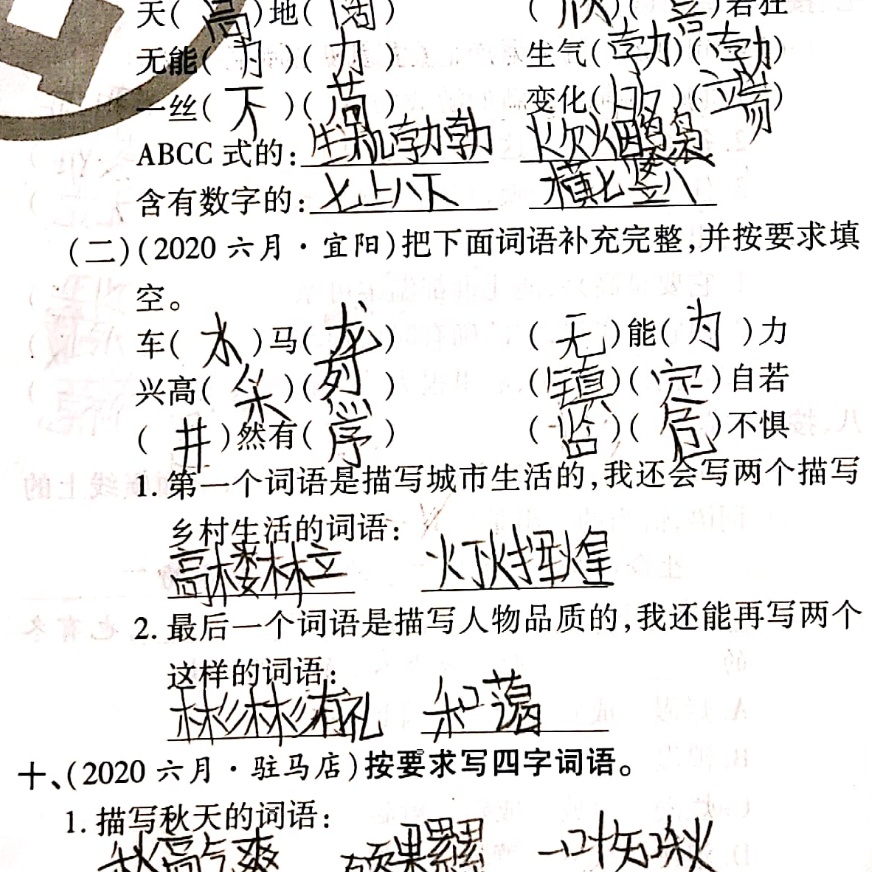 天(高)地(阔) (欣)(喜)若狂
无能(为)(力) 生气(勃)(勃)
一丝(不)(苟) 变化(多)(端)
ABCC 式的:生机勃勃 炊烟袅袅
含有数字的:七上八下 横七竖八
(二)(2020 六月·宜阳)把下面词语补充完整,并按要求填
空。
车(水)马(龙) (无)能(为)力
兴高(采)(烈) (镇)(定)自若
(井)然有(序) (临)(危)不惧
1. 第一个词语是描写城市生活的,我还会写两个描写
乡村生活的词语:
高楼林立 灯火辉煌
2. 最后一个词语是描写人物品质的,我还能再写两个
这样的词语:
彬彬有礼 和蔼
十、(2020 六月·驻马店)按要求写四字词语。
1. 描写秋天的词语:
秋高气爽 硕果累累 一叶知秋